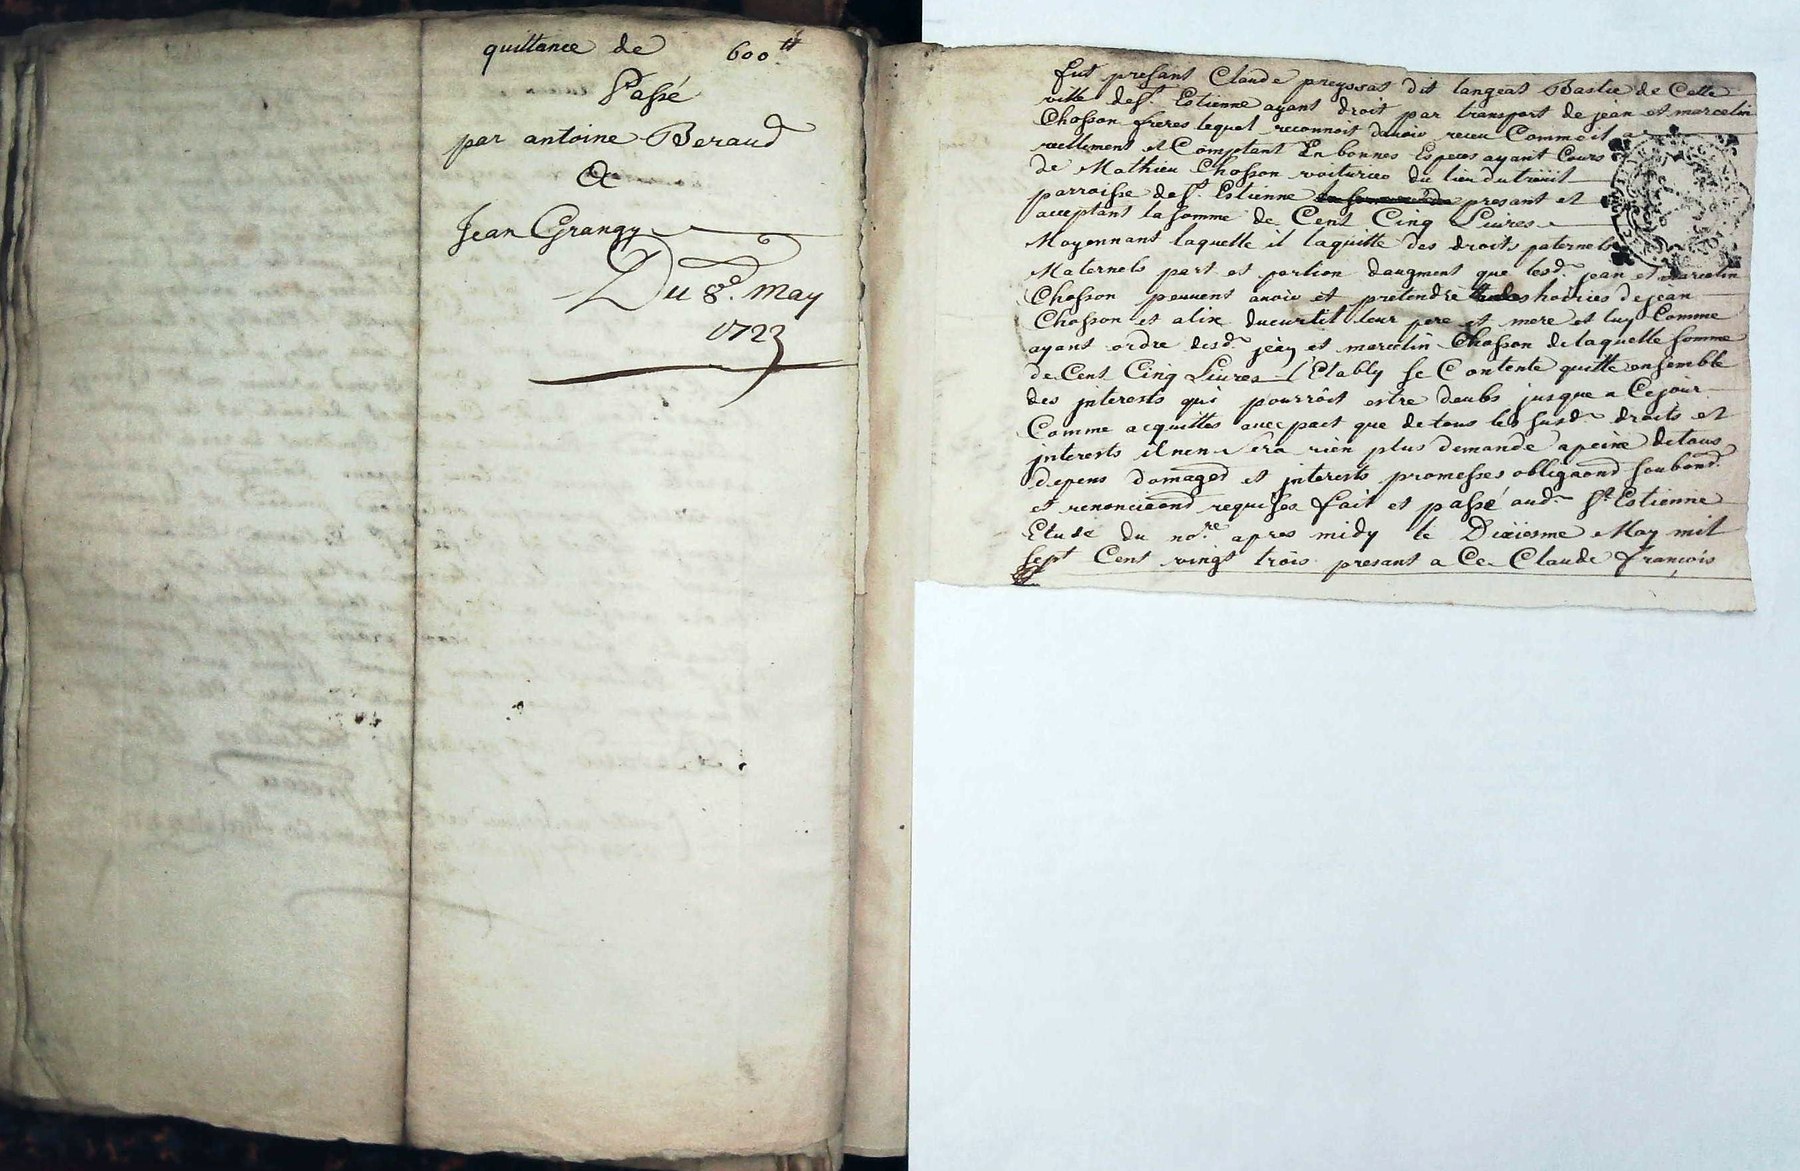 quittance de 600tt
Passé
par antoine Beraud
A
Jean Grangy
Du 8e. may
1723
fut presant Claude preyssat dit langeat Bastie de Cette
ville de St. Estienne ayant droit par transport de jean et marcelin
Chosson freres lequel reconnoit davoir receu Comme
reellement et Comptant En bonnes Especes ayant Cours
de Mathieu Chosson voiturier du lieu du treuil
parroisse de St. Estienne presant et
acceptant la somme de Cent Cinq Livres
Moyennant laquelle il laquitte des droits paternels
Maternels part et portion daugment que lesd. jean et marcelin
Chosson peuvent avoir et pretendre hoiries de jean
Chosson et alix ducurtil leur pere et mere et luy Comme
ayant ordre desd. jean et marcelin Chosson de laquelle somme
de Cent Cinq Livres l'Etably se Contente quitte ensemble
des jnterests qui pourroit estre deubs jusque a Cejour
Comme acquittes avec pact que de tous les susd. droits et
jnterests il nen sera rien plus demande a peine de tous
depens domages et jnterests promesses obligaons soubons
et renonciaons requises fait et passé aud. St. Estienne
Etude du nore. apres midy le Dixiesme May mil
sept Cent vingt trois presant a Ce Claude françois